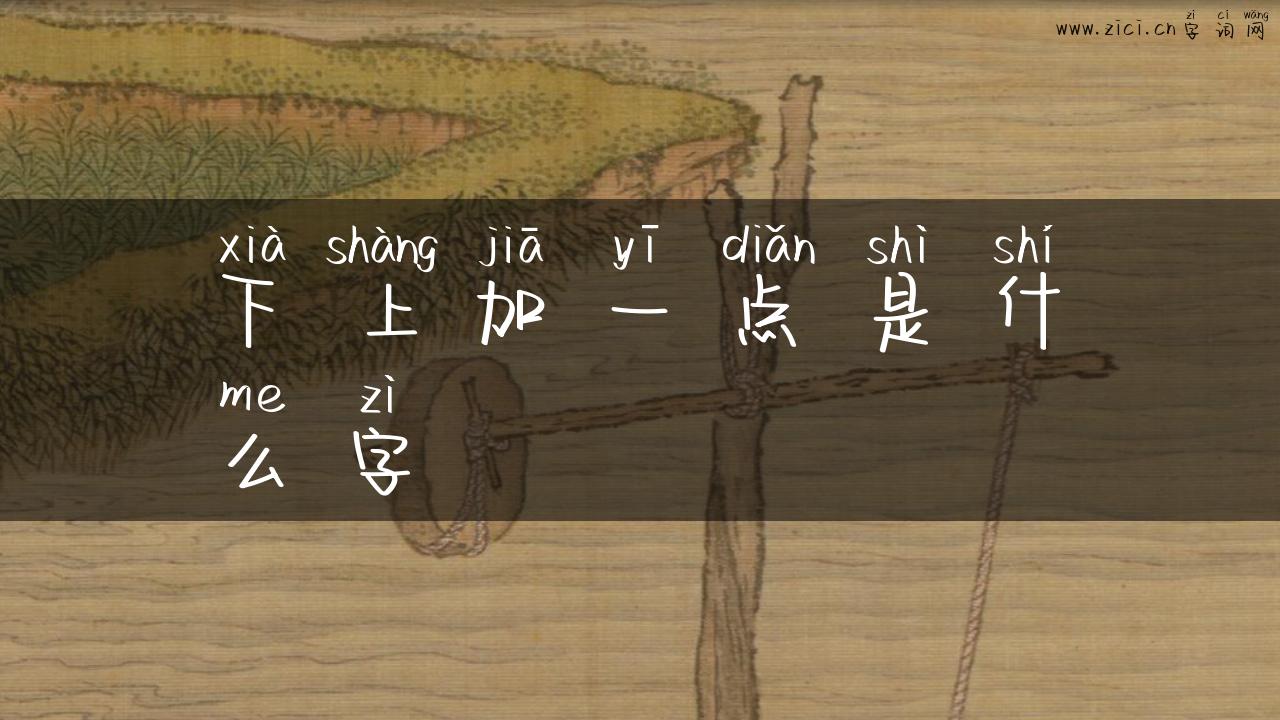 zì cí wǎng
www.zici.cn 字词网
xià shàng jiā yī diǎn shì shí
下上加一点是什
me zì
么字